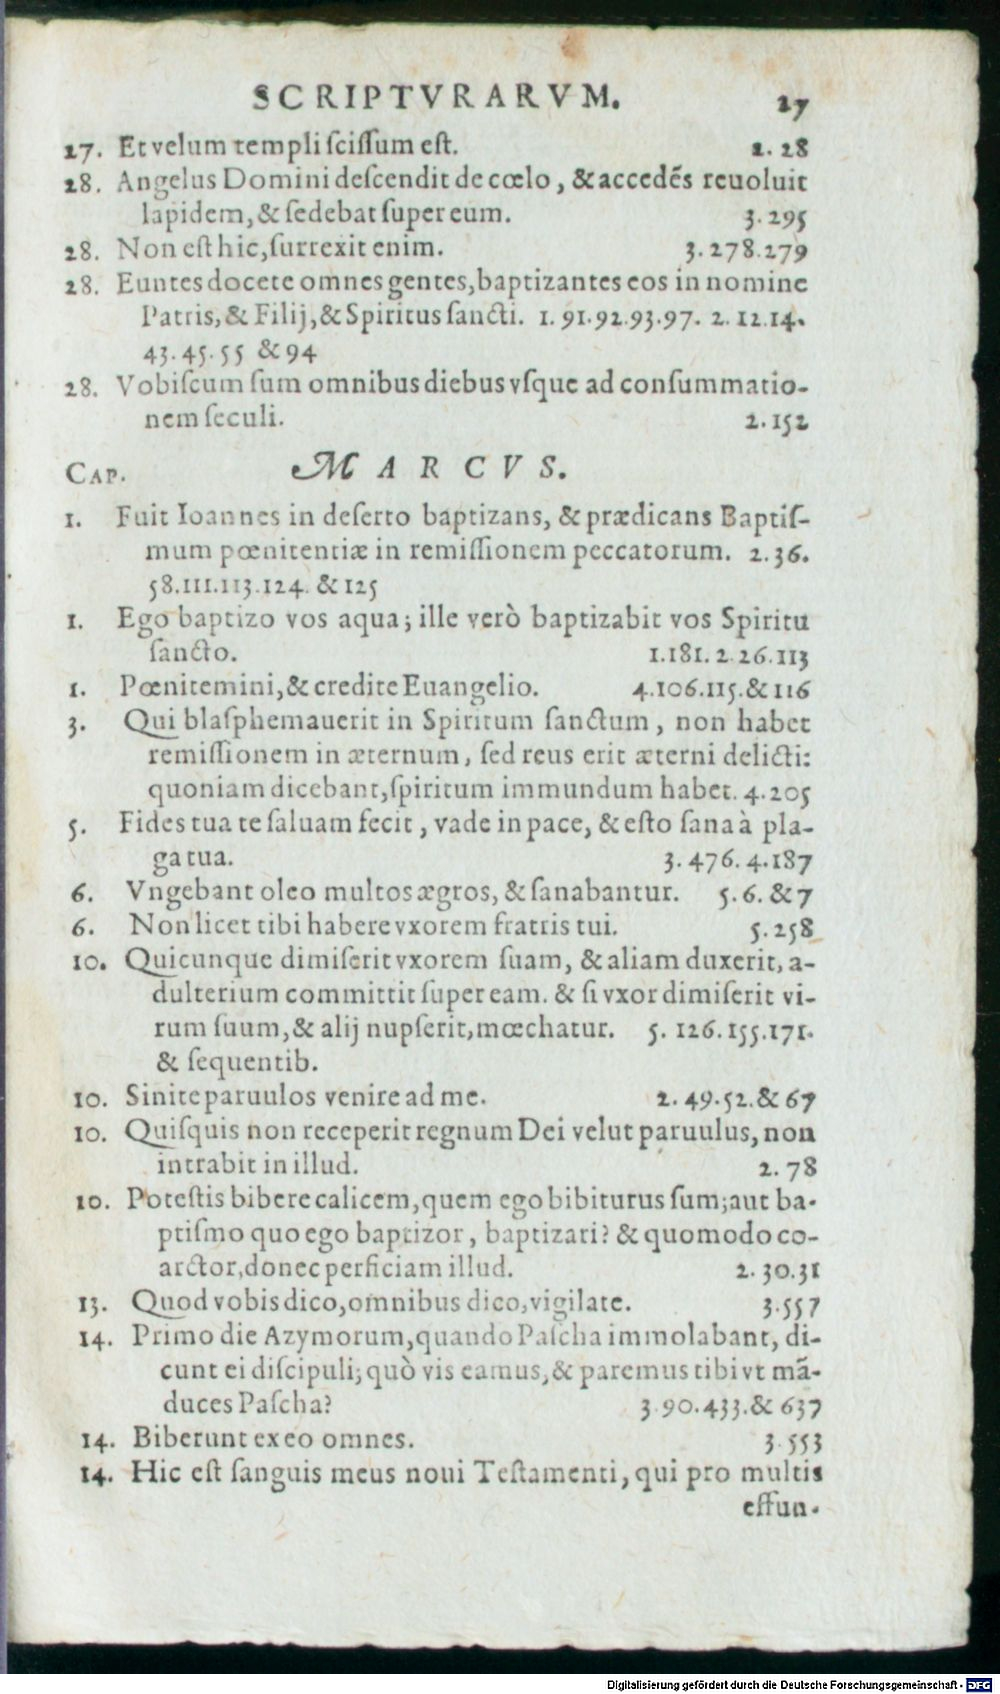 SCRIPTVRARVM. 27
27. Et velum templi ſciſſum eſt. 2. 28
28. Angelus Domini deſcendit de cœlo, & accedẽs reuoluit
lapidem, & ſedebat ſuper eum. 3. 295
28. Non eſt hic, ſurrexit enim. 3. 278. 279
28. Euntes docete omnes gentes, baptizantes eos in nomine
Patris, & Filij, & Spiritus ſancti. 1. 91. 92. 93. 97. 2. 12. 14.
43. 45. 55 & 94
28. Vobiſcum ſum omnibus diebus vſque ad conſummatio-
nem ſeculi. 2. 152
CAP. MARCVS.
1. Fuit Ioannes in deſerto baptizans, & prædicans Baptiſ-
mum pœnitentiæ in remiſſionem peccatorum. 2. 36.
58. 111. 113. 124. & 125
1. Ego baptizo vos aqua; ille verò baptizabit vos Spiritu
ſancto. 1. 181. 2. 26. 113
1. Pœnitemini, & credite Euangelio. 4. 106. 115. & 116
3. Qui blaſphemauerit in Spiritum ſanctum, non habet
remiſſionem in æternum, ſed reus erit æterni delicti:
quoniam dicebant, ſpiritum immundum habet. 4. 205
5. Fides tua te ſaluam fecit, vade in pace, & eſto ſana à pla-
ga tua. 3. 476. 4. 187
6. Vngebant oleo multos ægros, & ſanabantur. 5. 6. & 7
6. Non licet tibi habere vxorem fratris tui. 5. 258
10. Quicunque dimiſerit vxorem ſuam, & aliam duxerit, a-
dulterium committit ſuper eam. & ſi vxor dimiſerit vi-
rum ſuum, & alij nupſerit, mœchatur. 5. 126. 155. 171.
& ſequentib.
10. Sinite paruulos venire ad me. 2. 49. 52. & 67
10. Quiſquis non receperit regnum Dei velut paruulus, non
intrabit in illud. 2. 78
10. Poteſtis bibere calicem, quem ego bibiturus ſum; aut ba-
ptiſmo quo ego baptizor, baptizari? & quomodo co-
arctor, donec perficiam illud. 2. 30. 31
13. Quod vobis dico, omnibus dico, vigilate. 3. 557
14. Primo die Azymorum, quando Paſcha immolabant, di-
cunt ei diſcipuli; quò vis eamus, & paremus tibi vt mã-
duces Paſcha? 3. 90. 433. & 637
14. Biberunt ex eo omnes. 3. 553
14. Hic eſt ſanguis meus noui Teſtamenti, qui pro multis
effun-
Digitalisierung gefördert durch die Deutsche Forschungsgemeinschaft - DFG